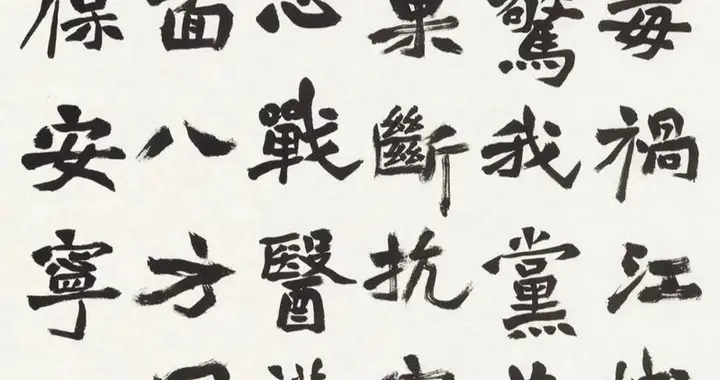 毒禍江
驚我黨
果斷抗
心戰醫
面八方
保安寧